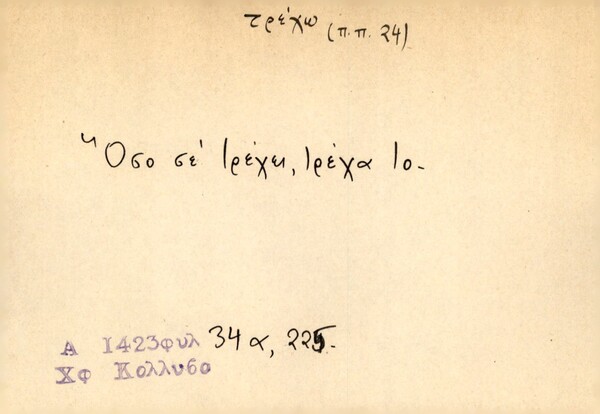 τρέχω (π.π. 24)
Ὅσο σέ τρέχει, τρέχα το.
Α 1423φυλ 34α, 225.
Χφ Κολλυβο